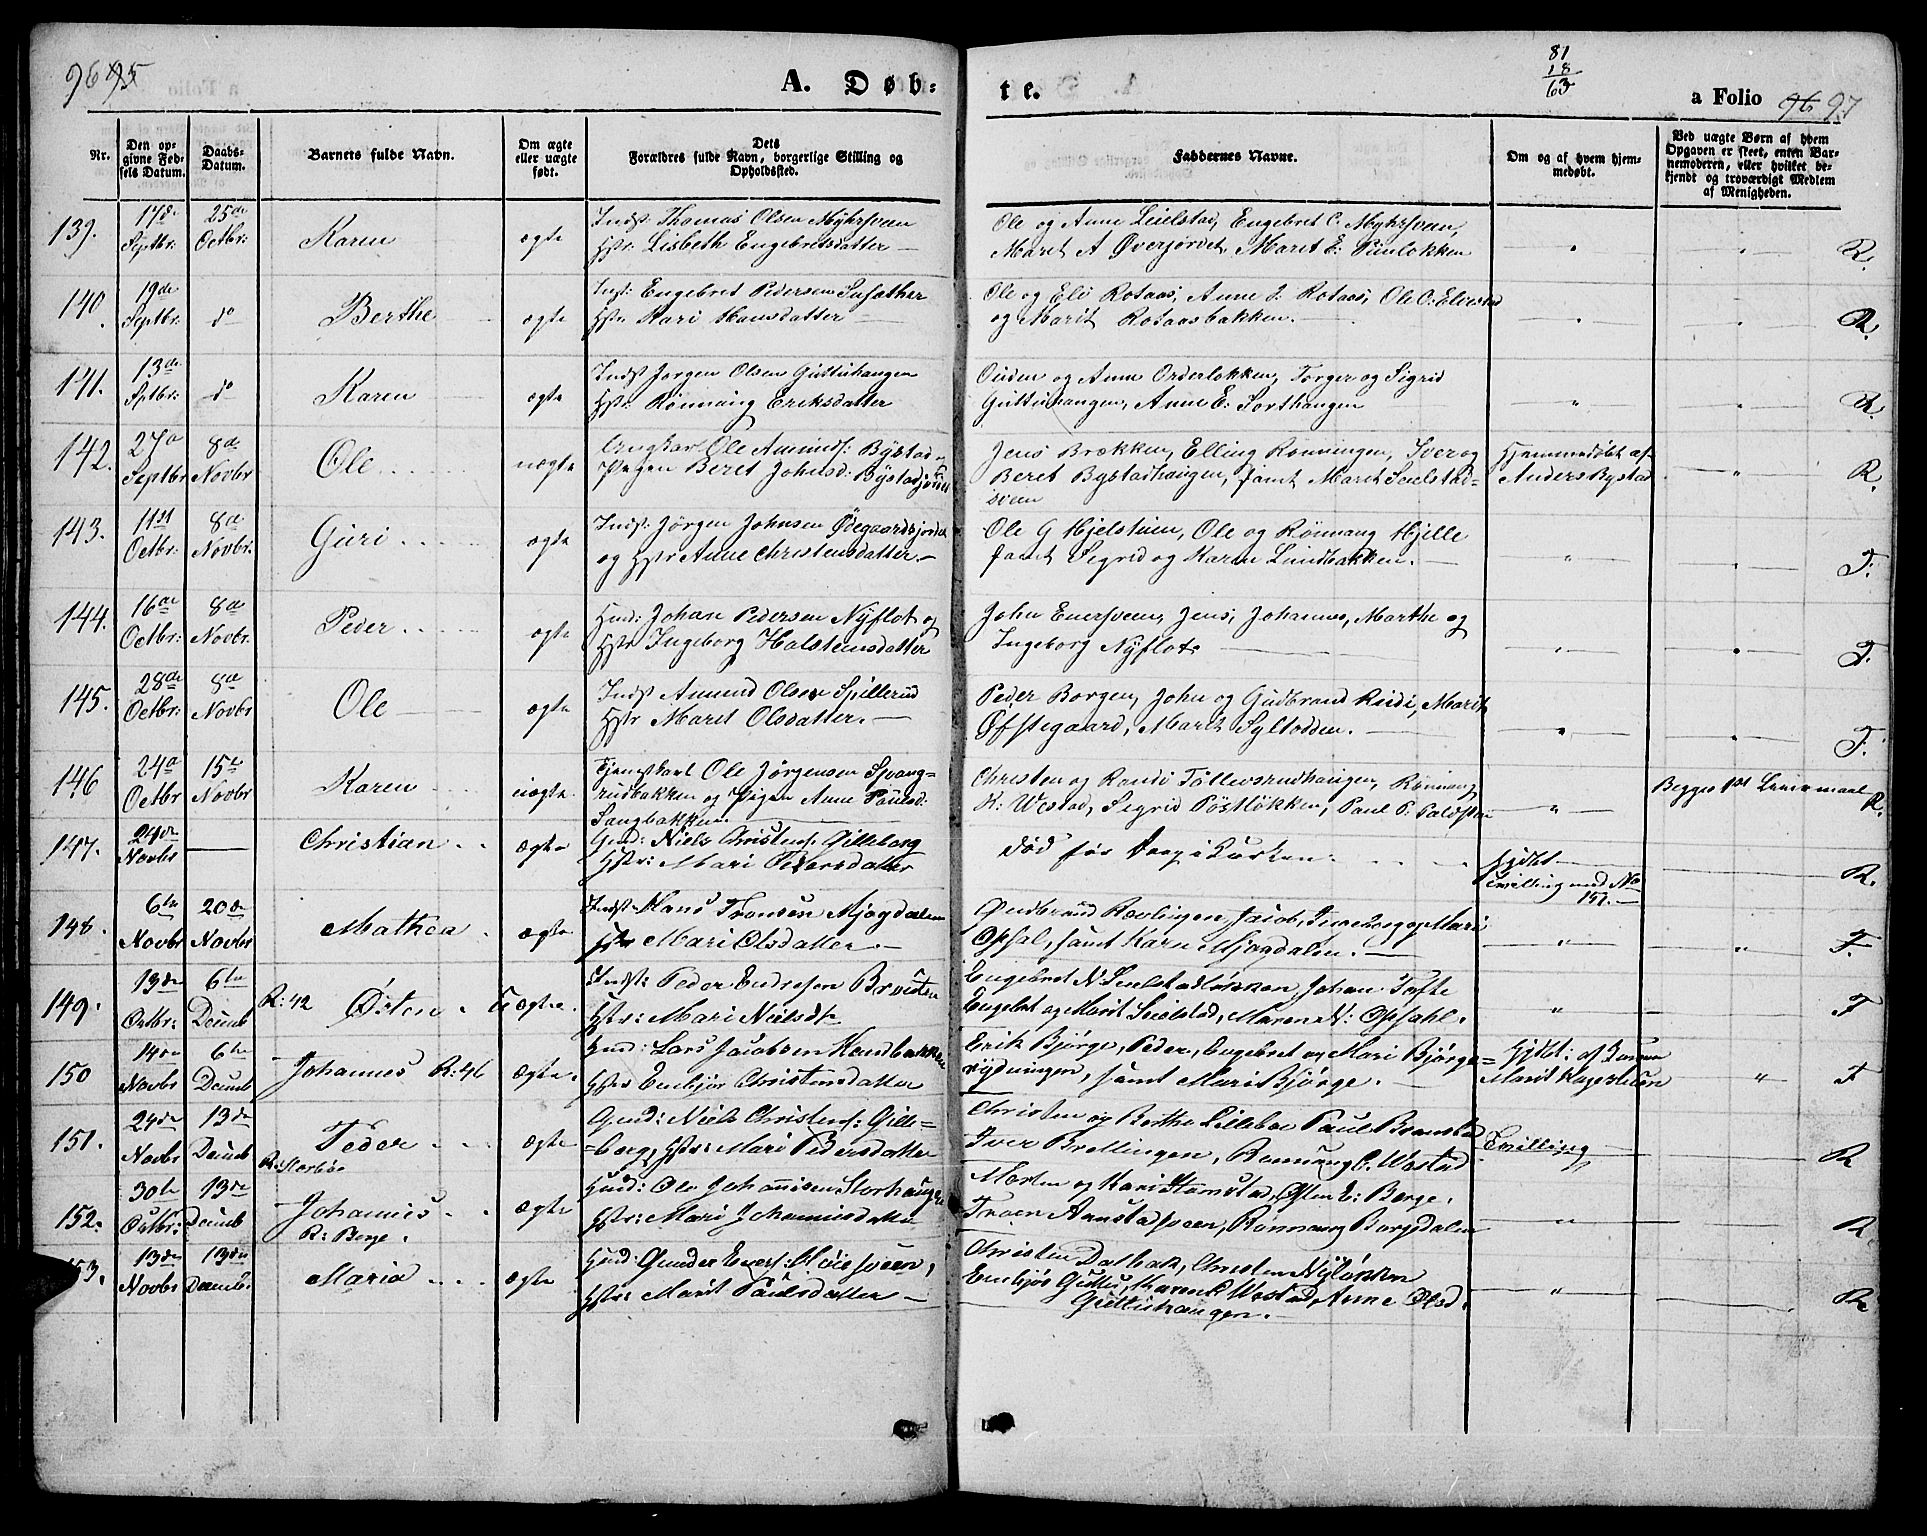 96 95
A. Døb-
te.
81
18
63
a Folio 96 97
Nr.
Den op-
givne Fød-
sels Datum.
Daabs-
Datum.
Barnets fulde Navn.
Om ægte
eller uægte
født.
Dets
Forældres fulde Navn, borgerlige Stilling og
Opholdssted.
Faddernes Navne.
Om og af hvem hjem-
medøbt.
Ved uægte Børn af hvem
Opgaven er skeet, enten Bar-
nemoderen, eller hvilket be-
kjendt og troværdigt Medlem
af Menigheden.
139. 17de Septbr: 25de Octbr: Karen ægte
Indst: Thomas Olsen Myhrsveen
Hstr: Lisbeth Engebretsdatter
Ole og Anne Seielstad, Engebret C. Myhrsveen,
Maret A Øverjordet, Marit E: Paulokken
" " R.
140. 19de Septbr: do Berthe ægte
Indst: Engebret Pedersen
Hstr Kari Hansdatter
Ole og Eli Rotaas, Anne J: Rotaas, Ole O: Elvestad
og Marit Rotaasbakken.
" " R.
141. 13de Sptbr: do Karen ægte
Indst Jørgen Olsen Guttuhaugen
Hstr: Rønnaug Eriksdatter
Ouden og Anne Orderlokken, Torger og Sigrid
Guttuhaugen, Anne E: Sorthaugen
" " R.
142. 27de Septbr 8de Novbr Ole uægte
Ungkar Ole Amunds: Bystad
Pigen Beret Johnsd: Bystadjordet
Jens Brækken, Elling Rønningen, Iver og
Beret Bystadhaugen, samt Maret Seielstad-
sveen
Hjemmedøbt af
Anders Bystad
" R.
143. 11te Octbr: 8de Novbr: Guri ægte
Indst: Jørgen Johnsen Ødegaardsjordet
og Hstr Anne Christensdatter.
Ole G Hjelstuen, Ole og Rønnaug Hjelle
samt Sigrid og Karen Lundbakken.
" " F.
144. 16de Octbr: 8de Novbr: Peder ægte
Huusm: Johan Pedersen Nyflot og
Hstr Ingeborg Halsteinsdatter
John Enersveen, Jens, Johannes, Marthe og
Ingeborg Nyflot
" " F.
145. 28de Octbr: 8de Novbr Ole ægte
Indst Amund Olsen Spillerud
Hstr Maret Olsdatter.
Peder Borgen, John og Gudbrand Rudi, Marit
Øfstegaard, Marit Syltodden.
" " F.
146 24de Octbr 15de Novbr Karen uægte
Tjenstkarl Ole Jørgensen Svang-
rudbakken og Pigen Anne Paulsd:
Sangbakken.
Christen og Randi Tollevsrudhaugen, Rønnaug
H: Westad, Sigrid Postløkken, Paul P:
" Begges 1ste Leiermaal R.
147. 24de Novbr Christian ægte
Gmd: Niels Christens: Gilleborg
Hstr: Mari Pedersdatter
Død før Daab i Kirken.
Hjdbt
Tvilling med No
151.
R.
148. 6te Novbr 20de Novbr Mathea ægte
Indst: Hans Fransen Mjogdalen
Hstr Mari Olsdatter
Gudbrand Rovlingen, Jacob, Ingeborg og Mari
Opsal, samt Karen Mjogdalen.
" " F.
149. 13de Octbr: 6te Decemb R: 42 Østen Uægte
Indst: Peder Endresen
Hstr: Mari Nielsdtr
Engebret N Seielstadløkken Johan Tofte
Engebret og Marit Seielstad, Maren N: Opsahl.
" F
150 14de Novbr 6te Decemb Johannes R: 46 ægte
Gmd: Lars Jacobsen
Hstr Embjør Christensdatter
Erik Bjørge, Peder, Engebret og Mari Bjørge-
rydningen, samt Mari Bjørge.
Hjdbt: af
Marit
" F
151. 24de Novbr 13de Decemb Peder ægte
Gmd: Niels Christens: Gille-
-borg, Hstr: Mari Pedersdatter
Christen og Berthe Lilleboe Paul Bramstad
Iver Brellingen, Rønnaug C. Westad
Tvilling R
152. 30te Octbr: 13de Decemb R: Storhøie Johannes R: Berge. ægte
Huusm: Ole Johannesen Storhaugen
Hstr: Mari Johannesdatter
Morten og Kari Hamstad, Østen E: Berge.
Troen Aunstadsveen, Rønnaug Borgdalen
" R.
153. 13de Novbr 13de Decemb: Maria ægte
Huusm: Gunder Eners: Høiesveen,
Hstr: Marit Paulsdatter
Christen Dalbak, Christen Nyløkken
Embjør Guttu, Karen C Westad, Anne Olsd.
Guttuhaugen.
" R